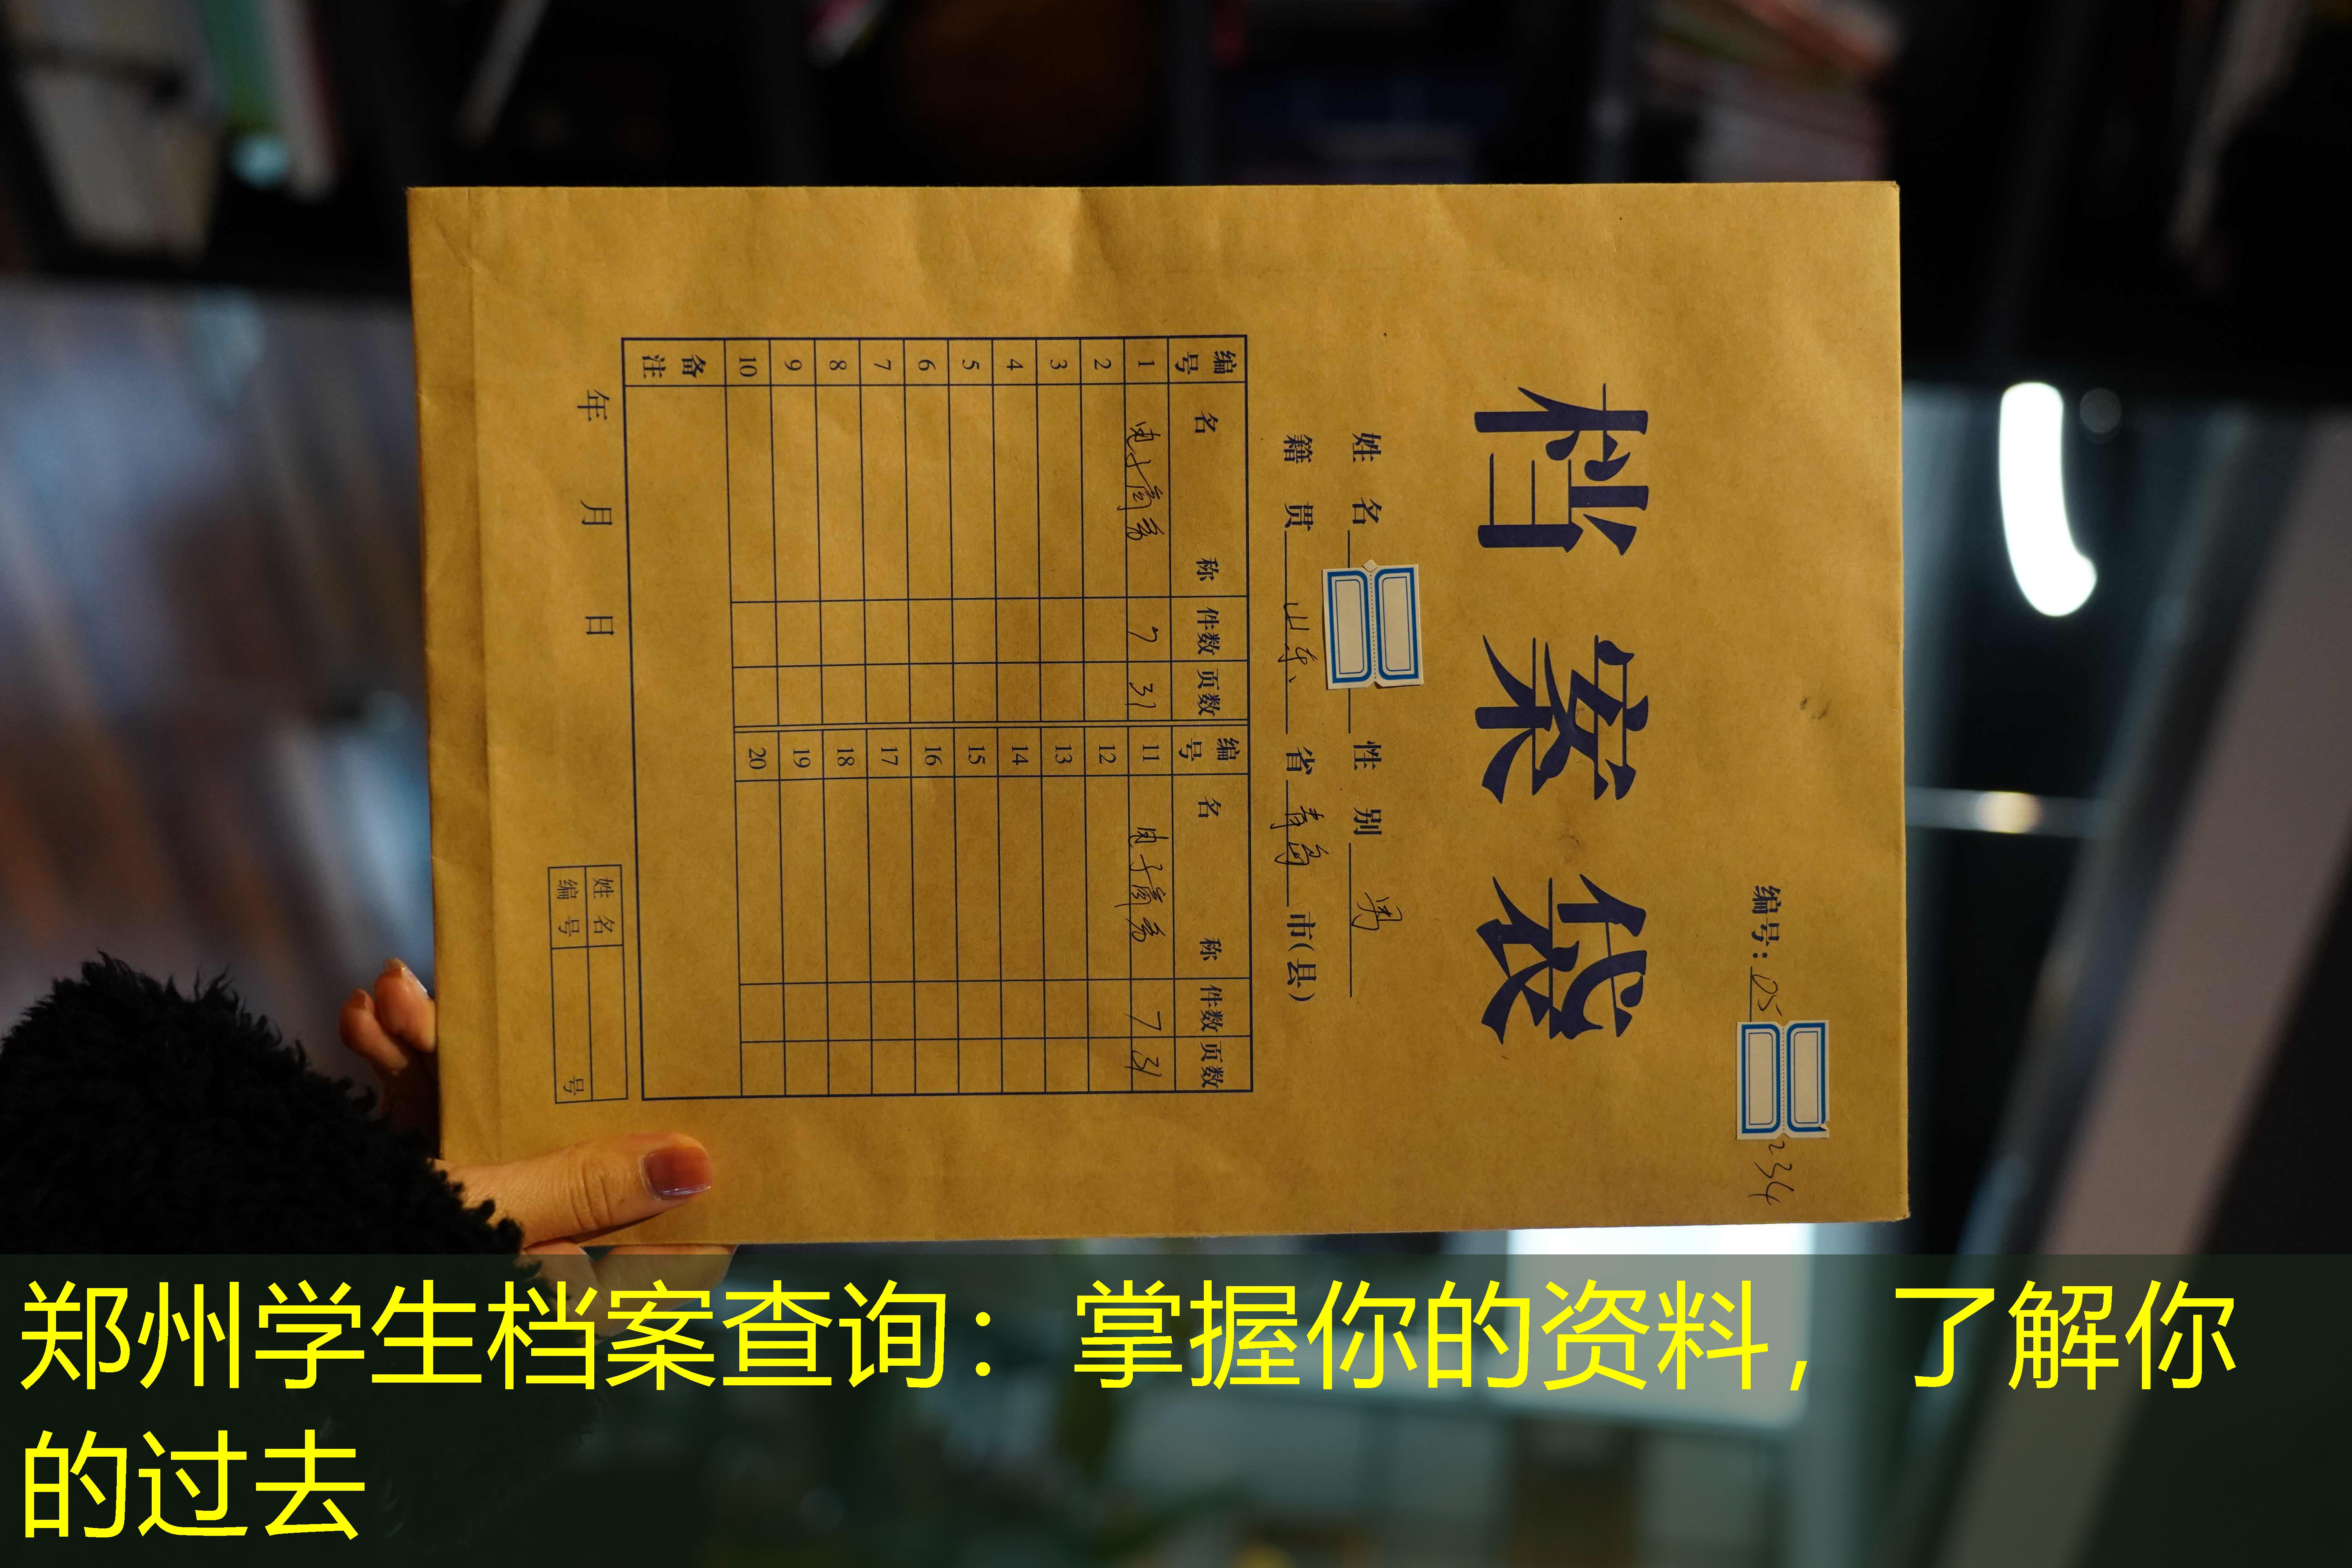 编号: 05 234
档案袋
姓名 性别 男
籍贯 山东 省 青岛 市(县)
编号 名称 件数 页数 编号 名称 件数 页数
1 电子商务 7 31 11 电子商务 7 31
2 12
3 13
4 14
5 15
6 16
7 17
8 18
9 19
10 20
备注
年 月 日
姓名
编号 号
郑州学生档案查询：掌握你的资料，了解你
的过去